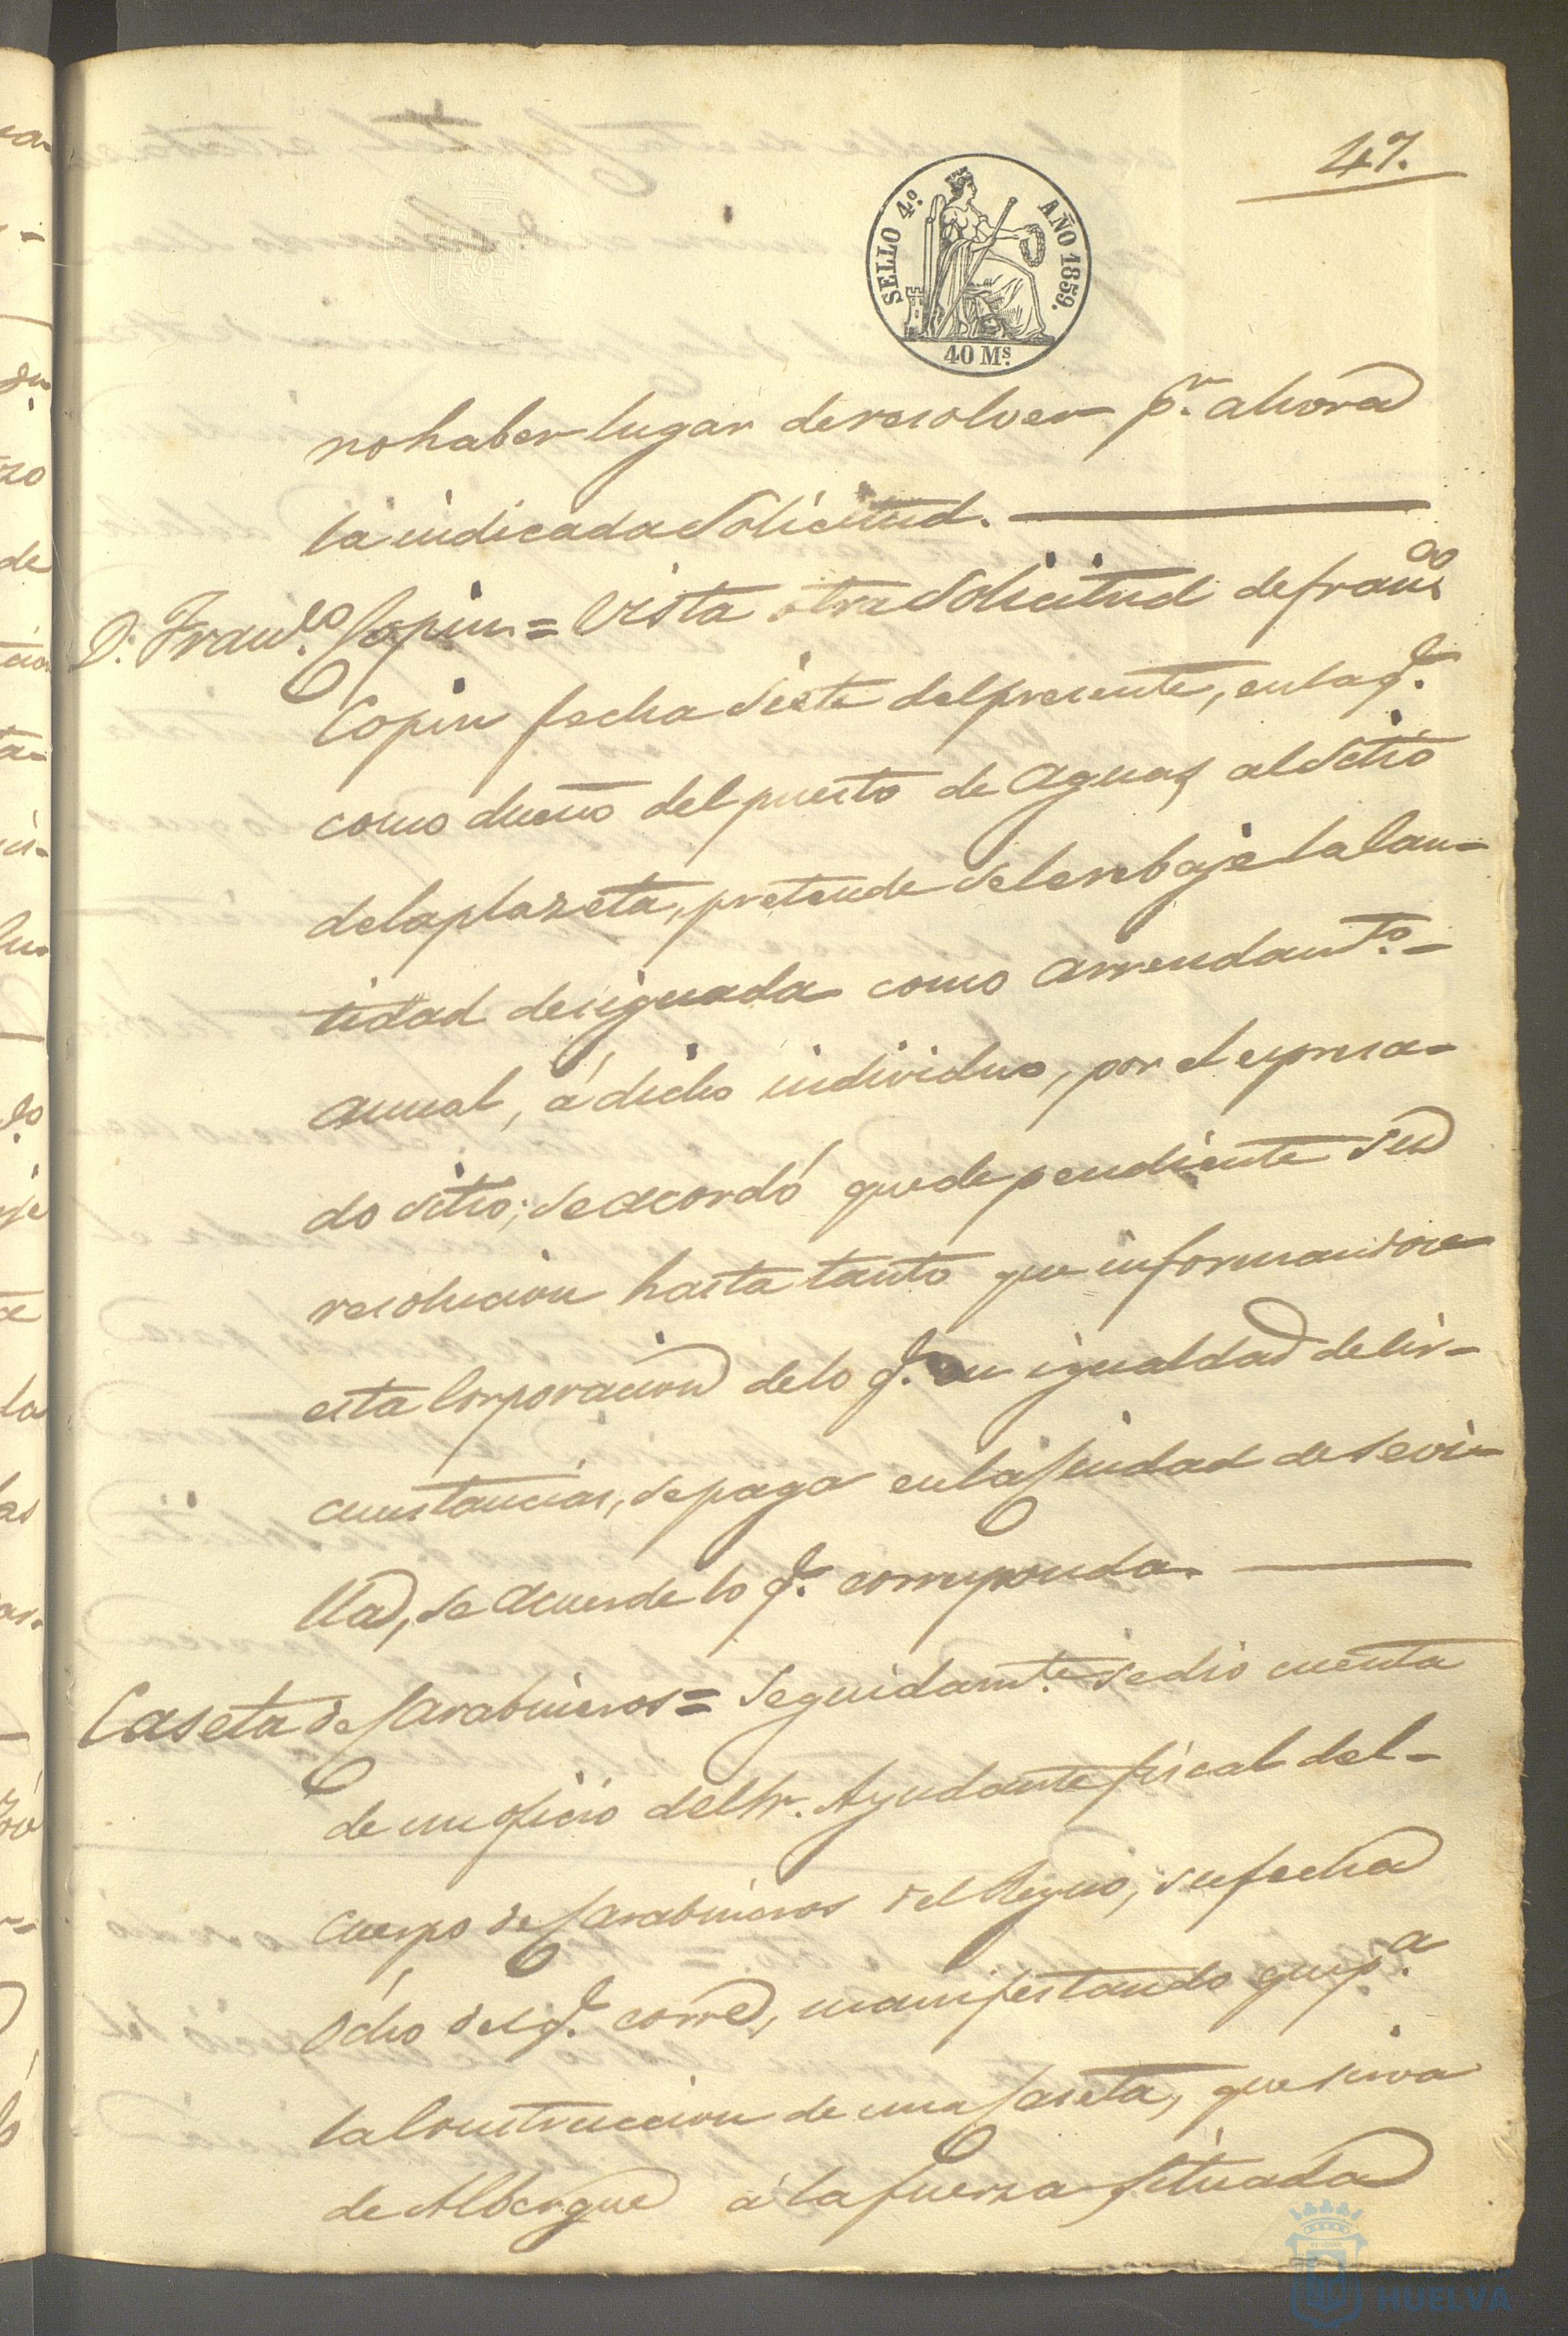 47.
SELLO 4º AÑO 1859.
40 Ms.
no haber lugar de resolver pr. ahora
la indicada Solicitud.
D. Franco. Copin = Vista otra Solicitud de franco
Copin fecha Siete del presente, en la q.e
como dueño del puesto de Aguas, al Sitio
de la plazeta, pretende Se le rebaje la Can-
tidad designada como arrendamto.
anual, á dicho individuo, por el espresa-
do Sitio; Se acordó quede pendiente su
resolucion hasta tanto que informandose
esta Corporacion de lo q.e en igualdad de Cir-
cunstancias, Se paga en la Ciudad de Sevi-
lla, Se acuerde lo q.e corresponda.
Caseta de Carabineros = Seguidamte. se dio cuenta
de un oficio del Sr. Ayudante fiscal del
cuerpo de Carabineros del Reyno, su fecha
Ocho del q.e corre, manifestando que p.a
la Construccion de una Caseta, que sirva
de Albergue á la fuerza Situada
HUELVA